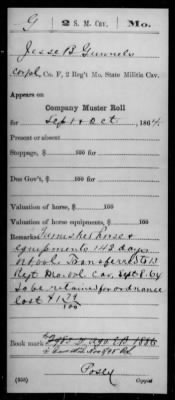 G 2 S. M. Cav. Mo.
Jesse B Gunnels
Corpl, Co. F, 2 Reg't Mo. State Militia Cav.
Appears on
Company Muster Roll
for Sept & Oct, 1864.
Present or absent
Stoppage, $ 100 for
Due Gov't, $ 100 for
Valuation of horse, $ 100
Valuation of horse equipments, $ 100
Remarks: Furnishes horse &
equipments 142 days
Transferred to 13
Regt Mo. Vol. Cav. Sept 8. 64
To be retained for ordnance
lost $1
100
Book mark:
(358) Posey
Copyist.